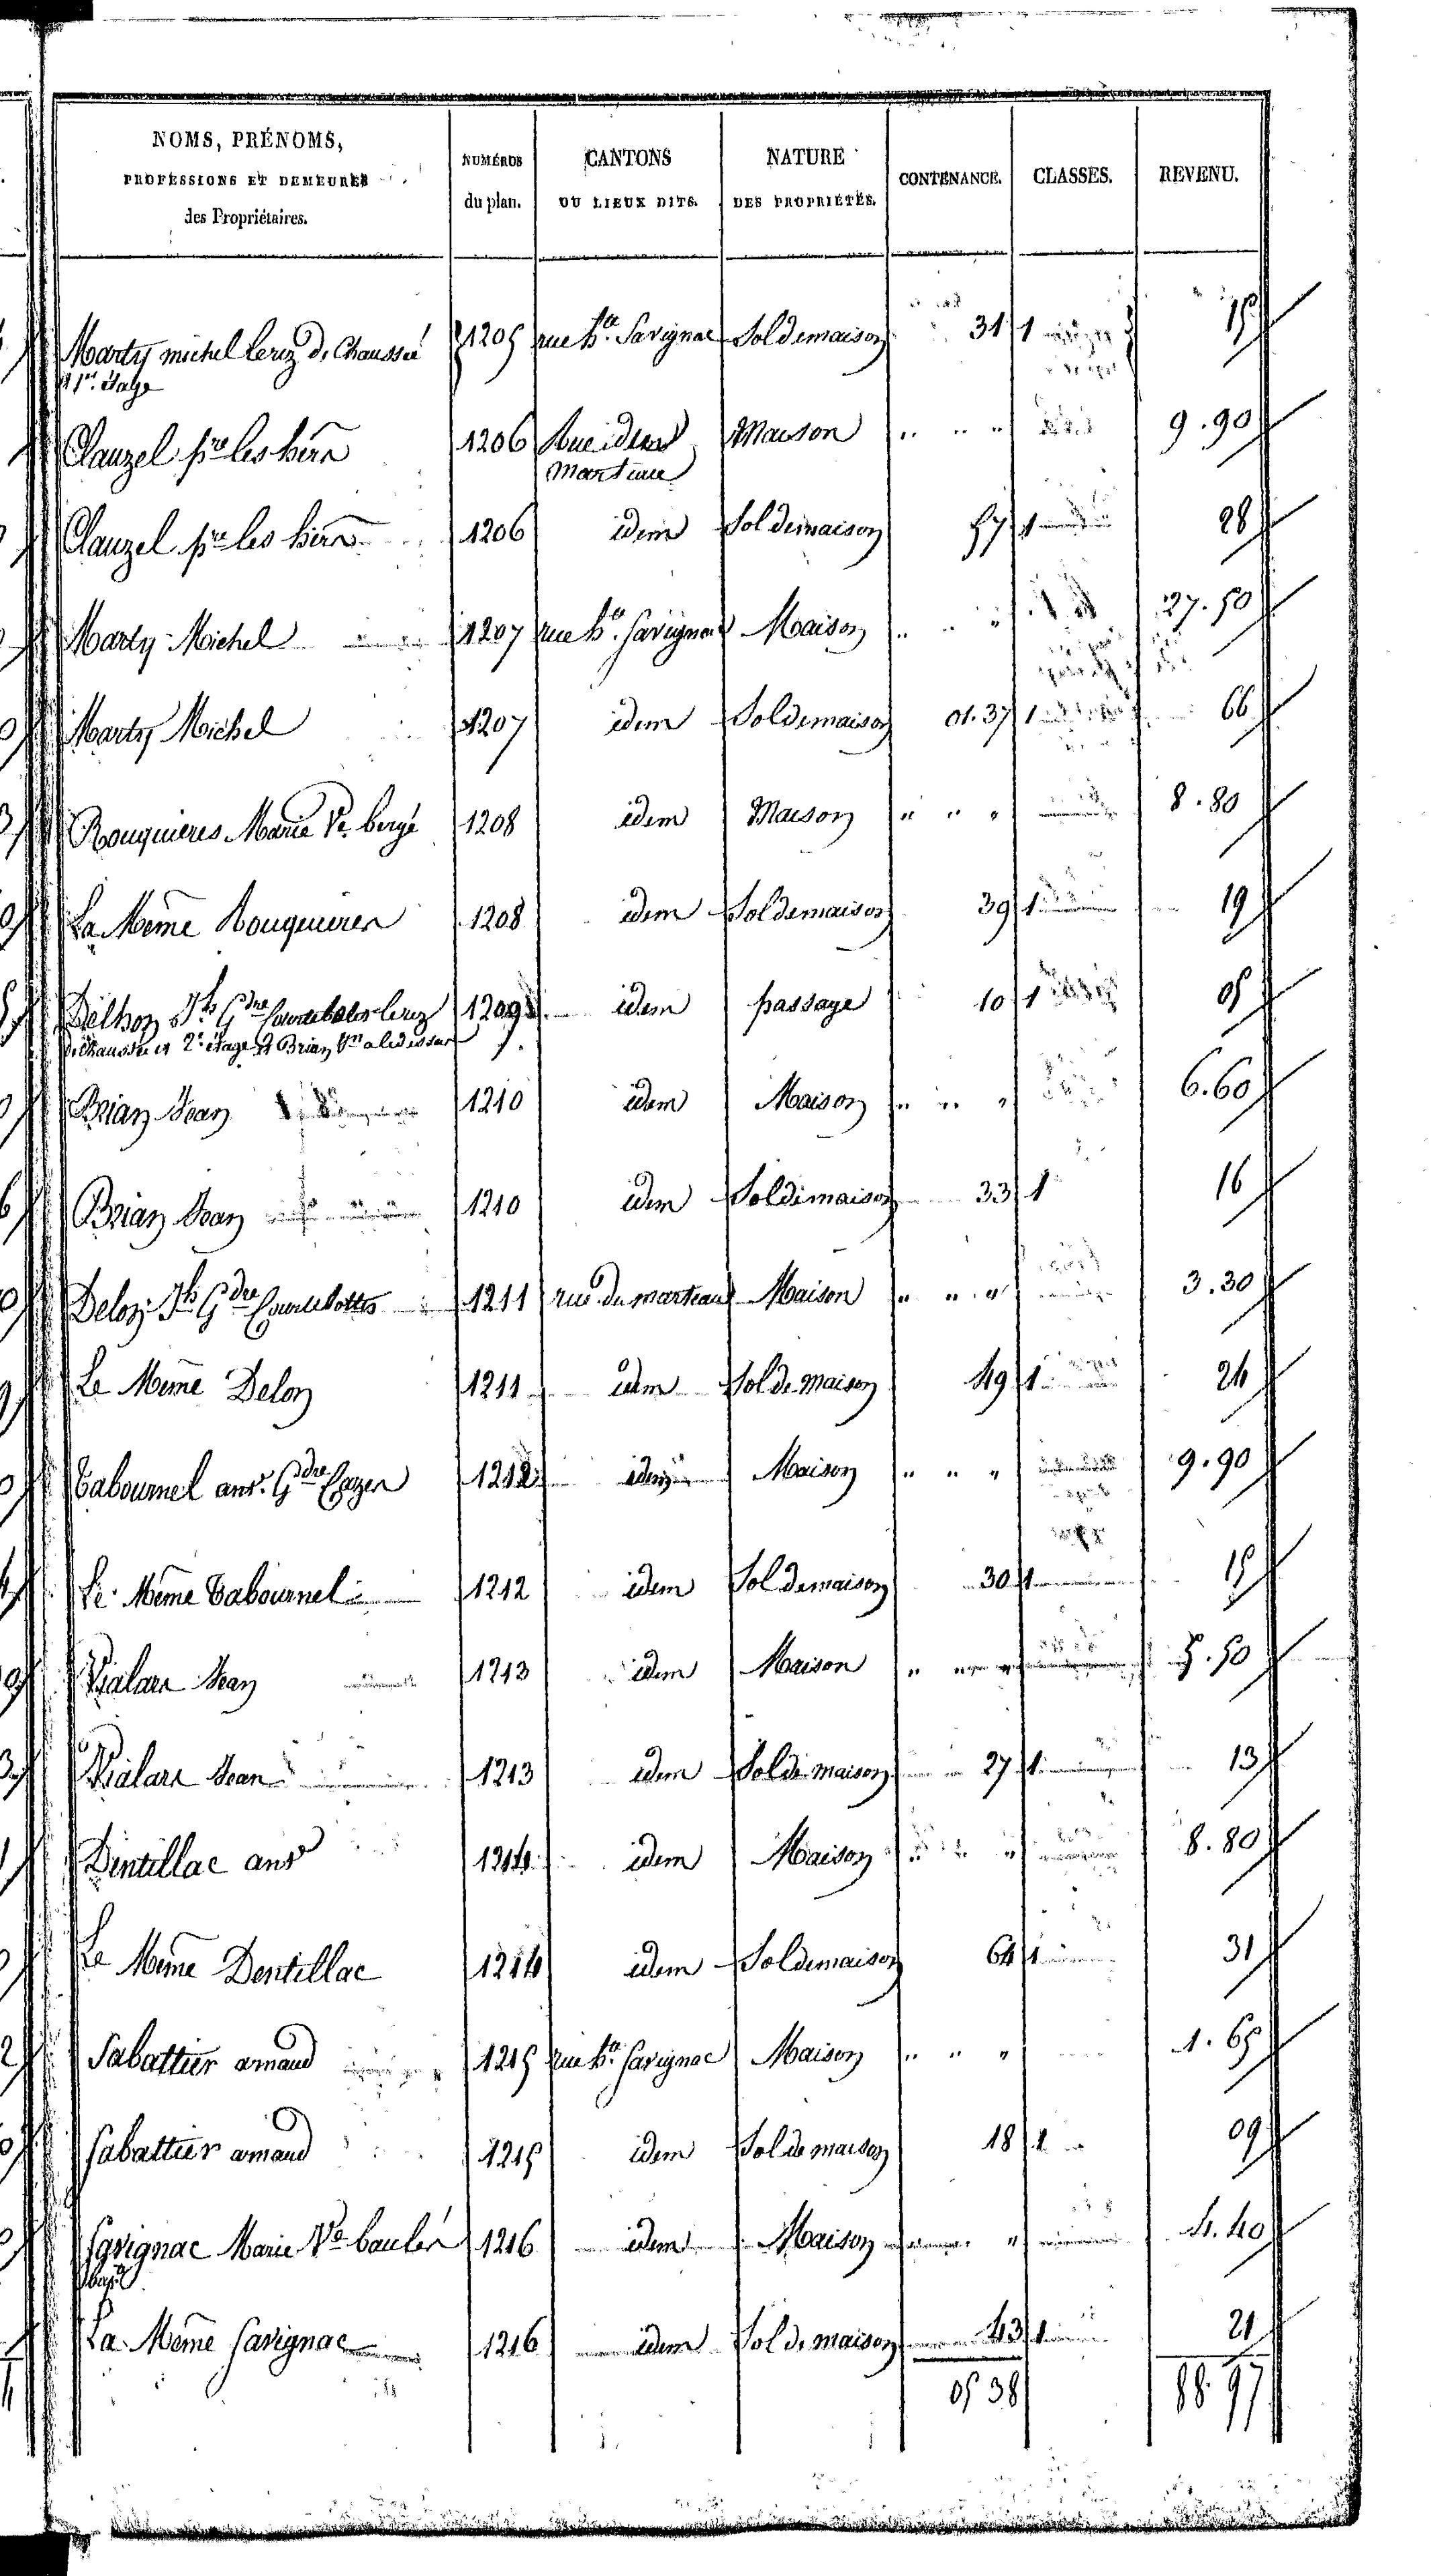 NOMS, PRÉNOMS,
PROFESSIONS ET DEMEURES
des Propriétaires.
NUMÉROS
du plan.
CANTONS
OU LIEUX DITS.
NATURE
DES PROPRIÉTÉS.
CONTENANCE.
CLASSES.
REVENU.
Marty michel lerez de Chaussée 1205 rue hte. Savignac Sol de maison 31 1 15
1er. Etage
Clauzel pre les hers 1206 Rue Maison " " " 9.90
Clauzel pre les hers 1206 idem Sol de maison 57 1 28
Marty Michel 1207 rue hte. Savignac Maison " " " 27.50
Marty Michel 1207 idem Sol de maison 01.37 1 66
Rouquieres Marie Ve. bergé 1208 idem Maison " " " 8.80
La Même Rouquieres 1208 idem Sol de maison 39 1 19
Delhon Jh Gdre lerez 1209 idem passage 10 1 05
de chaussée et 2e. étage et Brian a le dessus
Brian Jean 1210 idem Maison " " " 6.60
Brian Jean 1210 idem Sol de maison 33 1 16
Delon Jh Gdre 1211 rue du marteau Maison " " " 3.30
Le Même Delon 1211 idem Sol de Maison 49 1 24
Tabournel ant. Gdre 1212 idem Maison " " " 9.90
Le Même Tabournel 1212 idem Sol de maison 30 1 15
Vialar Jean 1213 idem Maison " " " 5.50
Vialar Jean 1213 idem Sol de maison 27 1 13
Dentillac ant 1214 idem Maison " " " 8.80
Le Même Dentillac 1214 idem Sol de maison 64 1 31
Sabattier arnaud 1215 rue hte. Savignac Maison " " " 1.65
Sabattier arnaud 1215 idem Sol de maison 18 1 09
Savignac Marie Ve 1216 idem Maison " 4.40
La Même Savignac 1216 idem Sol de maison 43 1 21
05 38 88.97